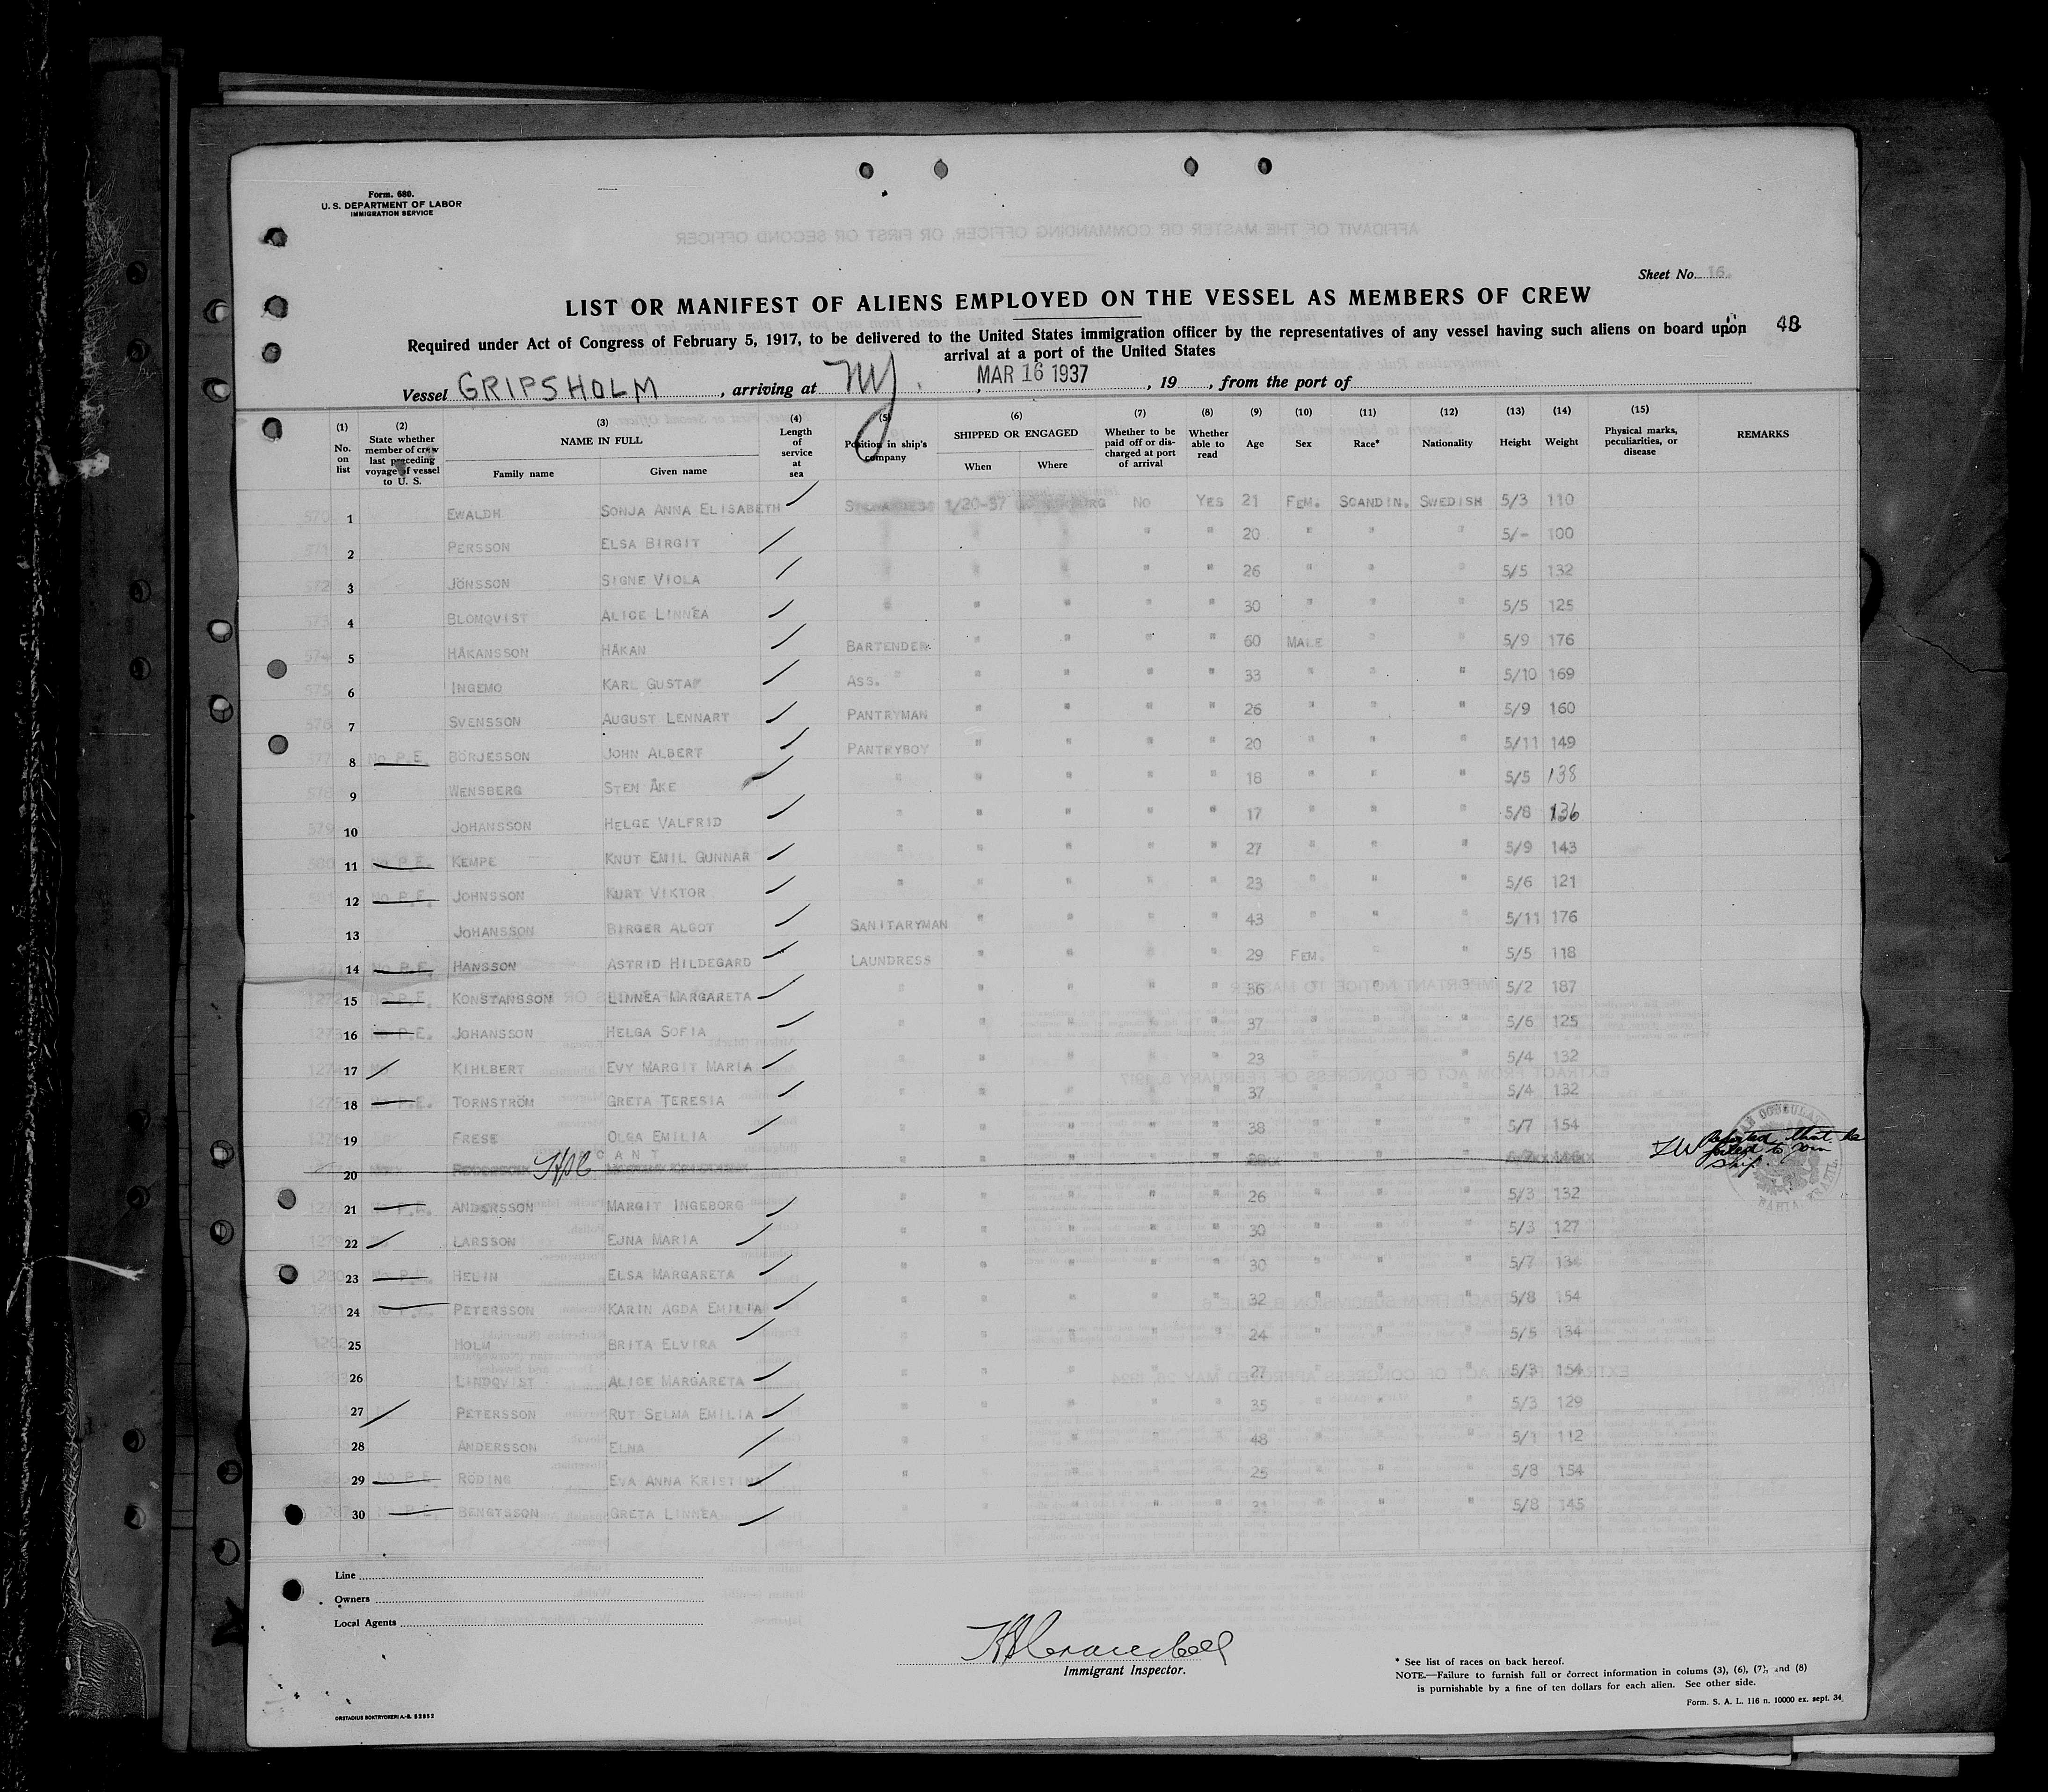 Form. 680.
U. S. DEPARTMENT OF LABOR
IMMIGRATION SERVICE
AFFIDAVIT OF THE MASTER OR COMMANDING OFFICER, OR FIRST OR SECOND OFFICER
Sheet No. 16.
LIST OR MANIFEST OF ALIENS EMPLOYED ON THE VESSEL AS MEMBERS OF CREW
Required under Act of Congress of February 5, 1917, to be delivered to the United States immigration officer by the representatives of any vessel having such aliens on board upon 48
arrival at a port of the United States
Vessel GRIPSHOLM, arriving at NY, MAR 16 1937, 19, from the port of
(1) No. on list (2) State whether member of crew last preceding voyage of vessel to U. S. (3) NAME IN FULL Family name Given name (4) Length of service at sea (5) Position in ship's company (6) SHIPPED OR ENGAGED When Where (7) Whether to be paid off or discharged at port of arrival (8) Whether able to read (9) Age (10) Sex (11) Race* (12) Nationality (13) Height (14) Weight (15) Physical marks, peculiarities, or disease REMARKS
1 EWALDH SONJA ANNA ELISABETH 1/20-37 NO YES 21 FEM. SCANDIN. SWEDISH 5/3 110
2 PERSSON ELSA BIRGIT " " 20 " " " 5/- 100
3 JÖNSSON SIGNE VIOLA " " 26 " " " 5/5 132
4 BLOMQVIST ALICE LINNÉA " " " " " 30 " " " 5/5 125
5 HÅKANSSON HÅKAN BARTENDER " " " " 60 MALE " " 5/9 176
6 INGEMO KARL GUSTAF ASS. " " " " " 33 " " " 5/10 169
7 SVENSSON AUGUST LENNART PANTRYMAN " " " " 26 " " " 5/9 160
8 No P.E. BÖRJESSON JOHN ALBERT PANTRYBOY " " " " 20 " " " 5/11 149
9 WENSBERG STEN ÅKE " " " " " 18 " " " 5/5 138
10 JOHANSSON HELGE VALFRID " " " " " 17 " " " 5/8 136
11 No P.E. KEMPE KNUT EMIL GUNNAR " " " " " 27 " " " 5/9 143
12 No P.E. JOHNSSON KURT VIKTOR " " " " " 23 " " " 5/6 121
13 JOHANSSON BIRGER ALGOT SANITARYMAN " " " " 43 " " " 5/11 176
14 No P.E. HANSSON ASTRID HILDEGARD LAUNDRESS " " " " 29 FEM. " " 5/5 118
15 No P.E. KONSTANSSON LINNEA MARGARETA " " " " " 36 " " " 5/2 187
16 No P.E. JOHANSSON HELGA SOFIA " " " " " 37 " " " 5/6 125
17 KIHLBERT EVY MARGIT MARIA " " " " " 23 " " " 5/4 132
18 No P.E. TORNSTRÖM GRETA TERESIA " " " " " 37 " " " 5/4 132
19 FRESE OLGA EMILIA " " " " " 38 " " " 5/7 154
20
failed to join ship.
21 No P.E. ANDERSSON MARGIT INGEBORG " " " " " 26 " " " 5/3 132
22 LARSSON EJNA MARIA " " " " " 30 " " " 5/3 127
23 No P.E. HELIN ELSA MARGARETA " " " " " 30 " " " 5/7 134
24 No P.E. PETERSSON KARIN AGDA EMILIA " " " " " 32 " " " 5/8 154
25 HOLM BRITA ELVIRA " " " " " 24 " " " 5/5 134
26 LINDQVIST ALICE MARGARETA " " " " " 27 " " " 5/3 154
27 PETERSSON RUT SELMA EMILIA " " " " " 35 " " " 5/3 129
28 ANDERSSON ELNA " " " " " 48 " " " 5/1 112
29 No P.E. RÖDING EVA ANNA KRISTINA " " " " " 25 " " " 5/8 154
30 No P.E. BENGTSSON GRETA LINNÉA " " " " " 31 " " " 5/8 145
Line
Owners
Local Agents
Immigrant Inspector.
* See list of races on back hereof.
NOTE.—Failure to furnish full or correct information in colums (3), (6), (7), and (8)
is punishable by a fine of ten dollars for each alien. See other side.
Form. S. A. L. 116 n. 10000 ex. sept. 34.
ORSTADIUS BOKTRYCKERI A.-B. 52852